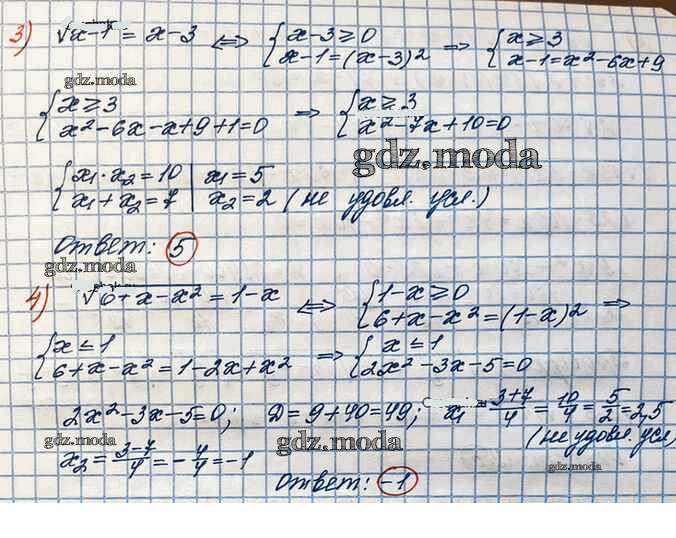 3) √x-1 = x-3 ⇔ { x-3≥0 ; x-1=(x-3)² ⇒ { x≥3 ; x-1=x²-6x+9
gdz.moda
{ x≥3 ; x²-6x-x+9+1=0 ⇒ { x≥3 ; x²-7x+10=0
gdz.moda
{ x₁·x₂=10 ; x₁+x₂=7 | x₁=5 ; x₂=2 (не удовл. усл.)
Ответ: 5
gdz.moda
4) √6+x-x² = 1-x ⇔ { 1-x≥0 ; 6+x-x²=(1-x)² ⇒
gdz.moda
{ x≤1 ; 6+x-x²=1-2x+x² ⇒ { x≤1 ; 2x²-3x-5=0
2x²-3x-5=0; D=9+40=49; x₁ = 3+7/4 = 10/4 = 5/2 = 2,5
(не удовл. усл)
gdz.moda
x₂ = 3-7/4 = -4/4 = -1
gdz.moda
Ответ: -1